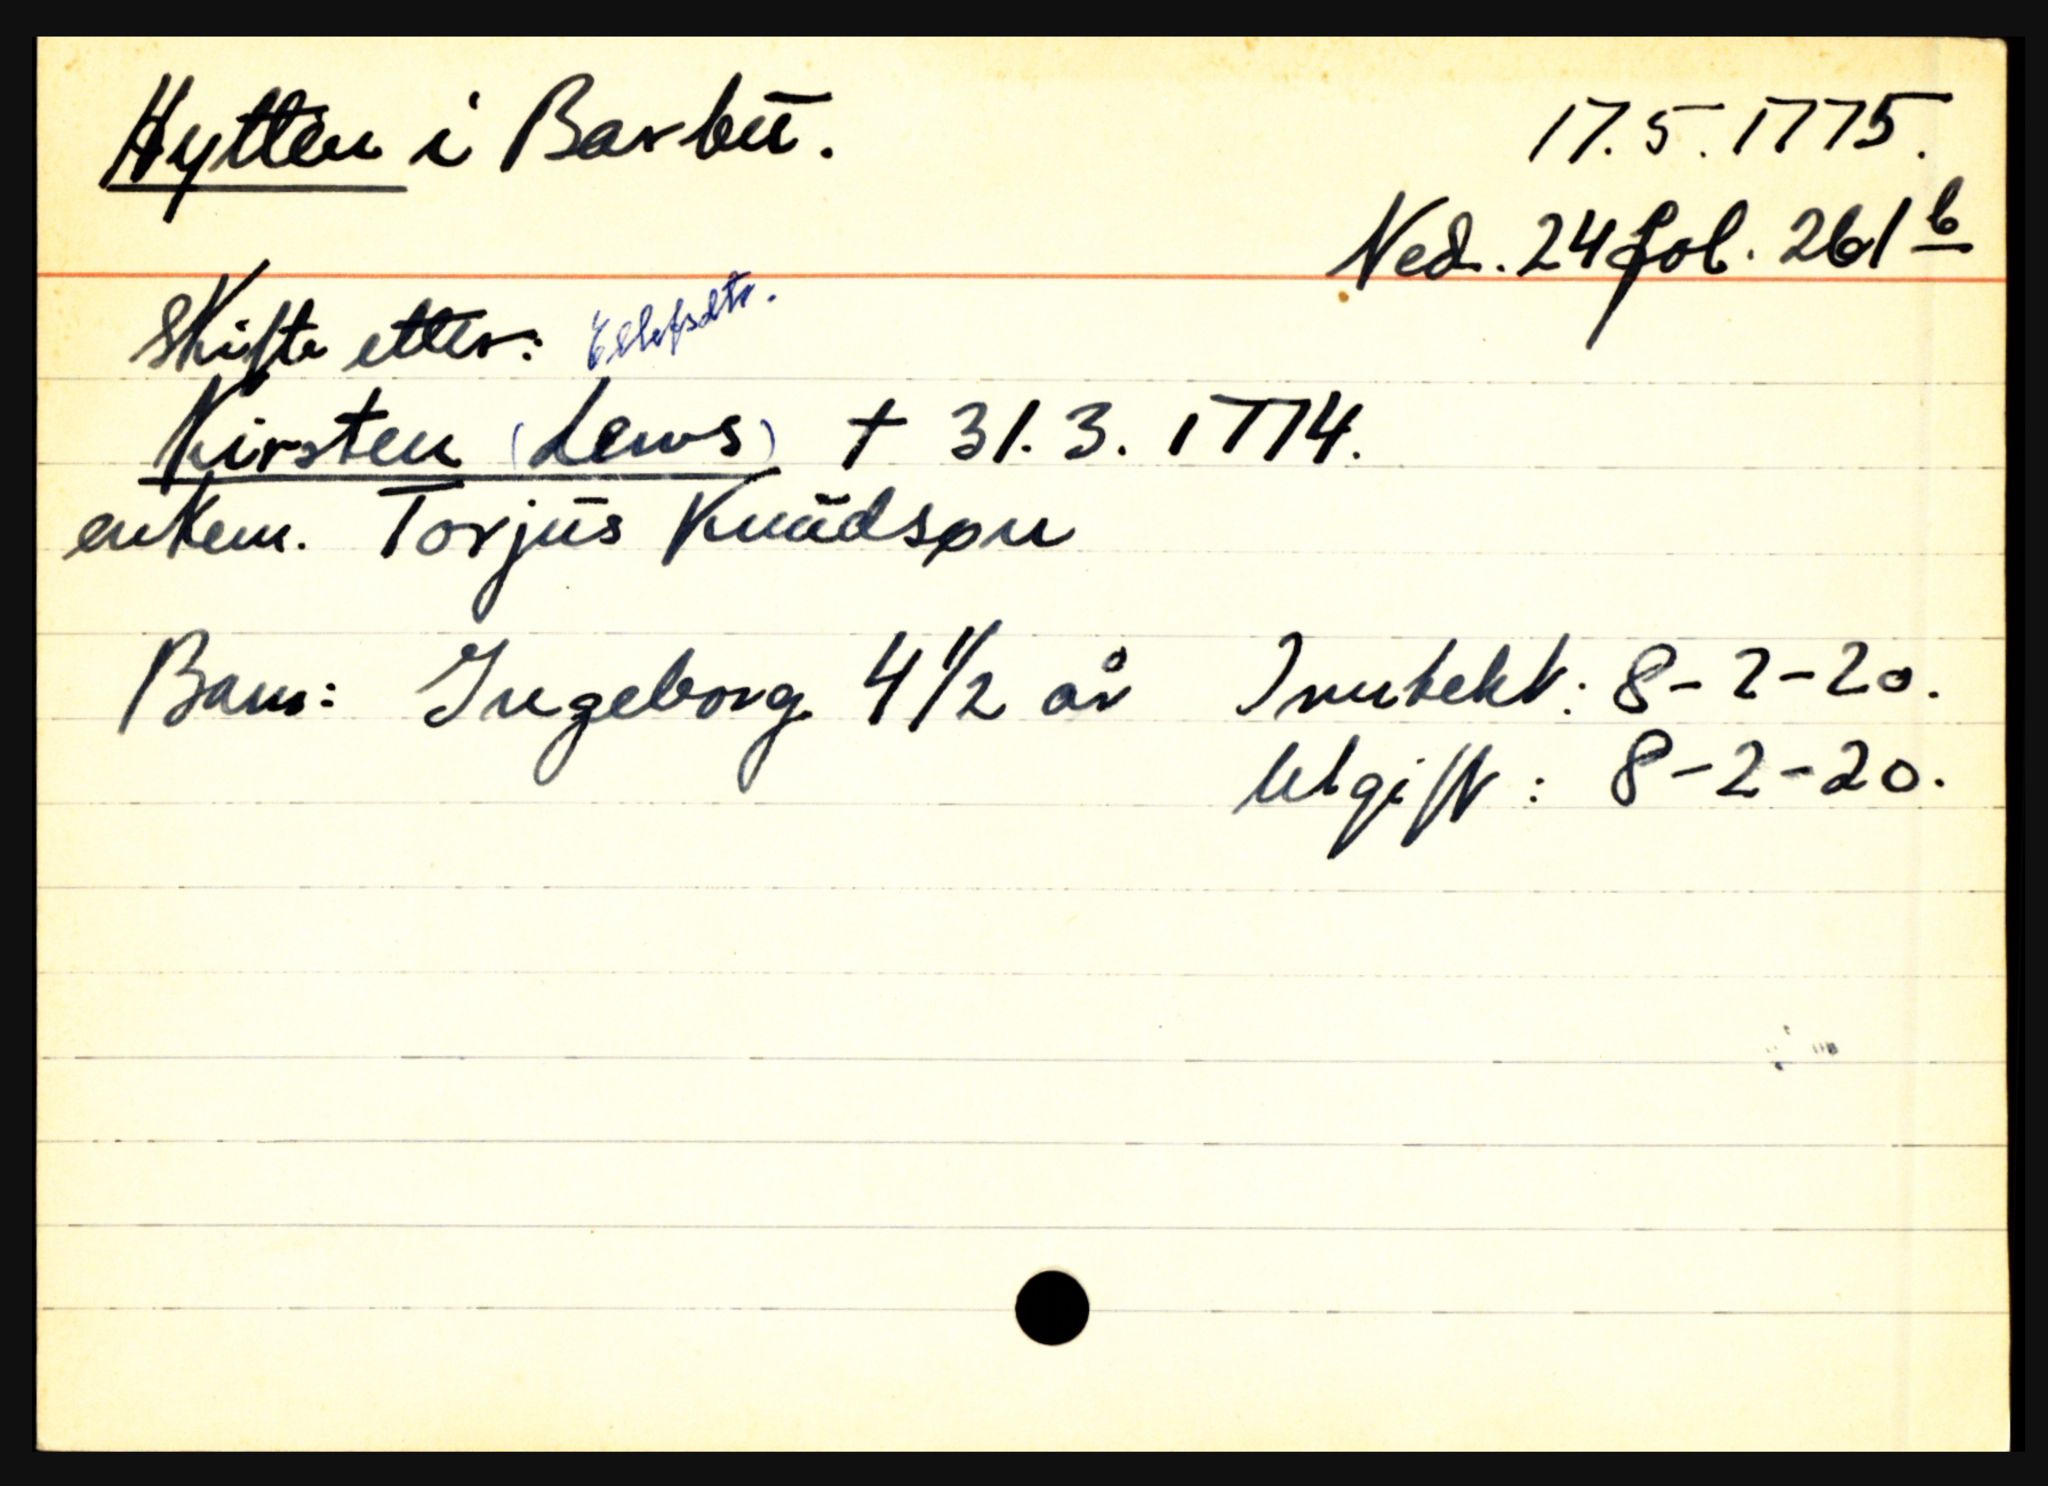 Hytten i Barbu.
17.5.1775.
Ned. 24 fol. 261 b
Skifte etter: Ellefsdtr.
Kirsten (Lews) † 31.3.1774.
enkem. Torjus Knudsøn
Barn: Ingeborg 4 1/2 år Inntekt: 8-2-20.
Utgift: 8-2-20.